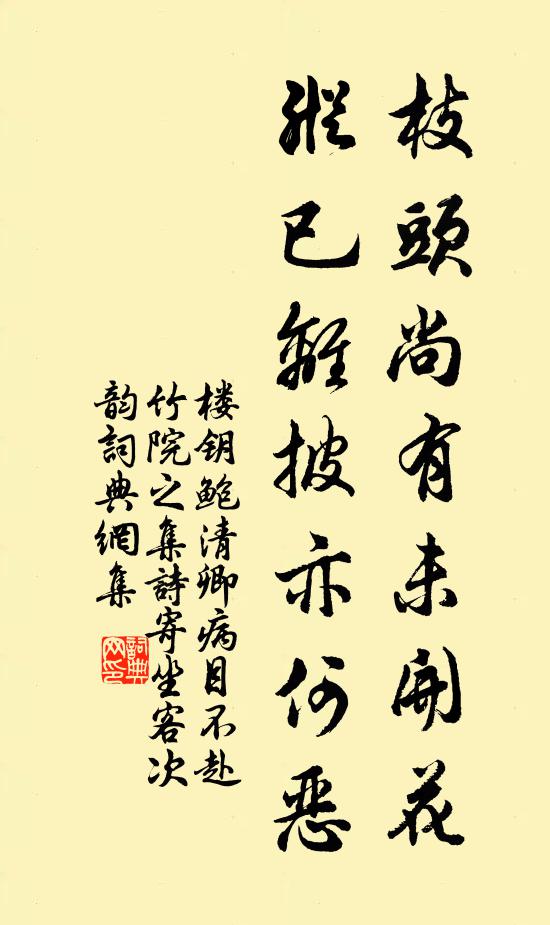 枝頭尚有未開花
縱已離披亦何惡
楼钥鲍清卿病目不赴
竹院之集詩寄坐客次
韵詞典網集
詞典網印